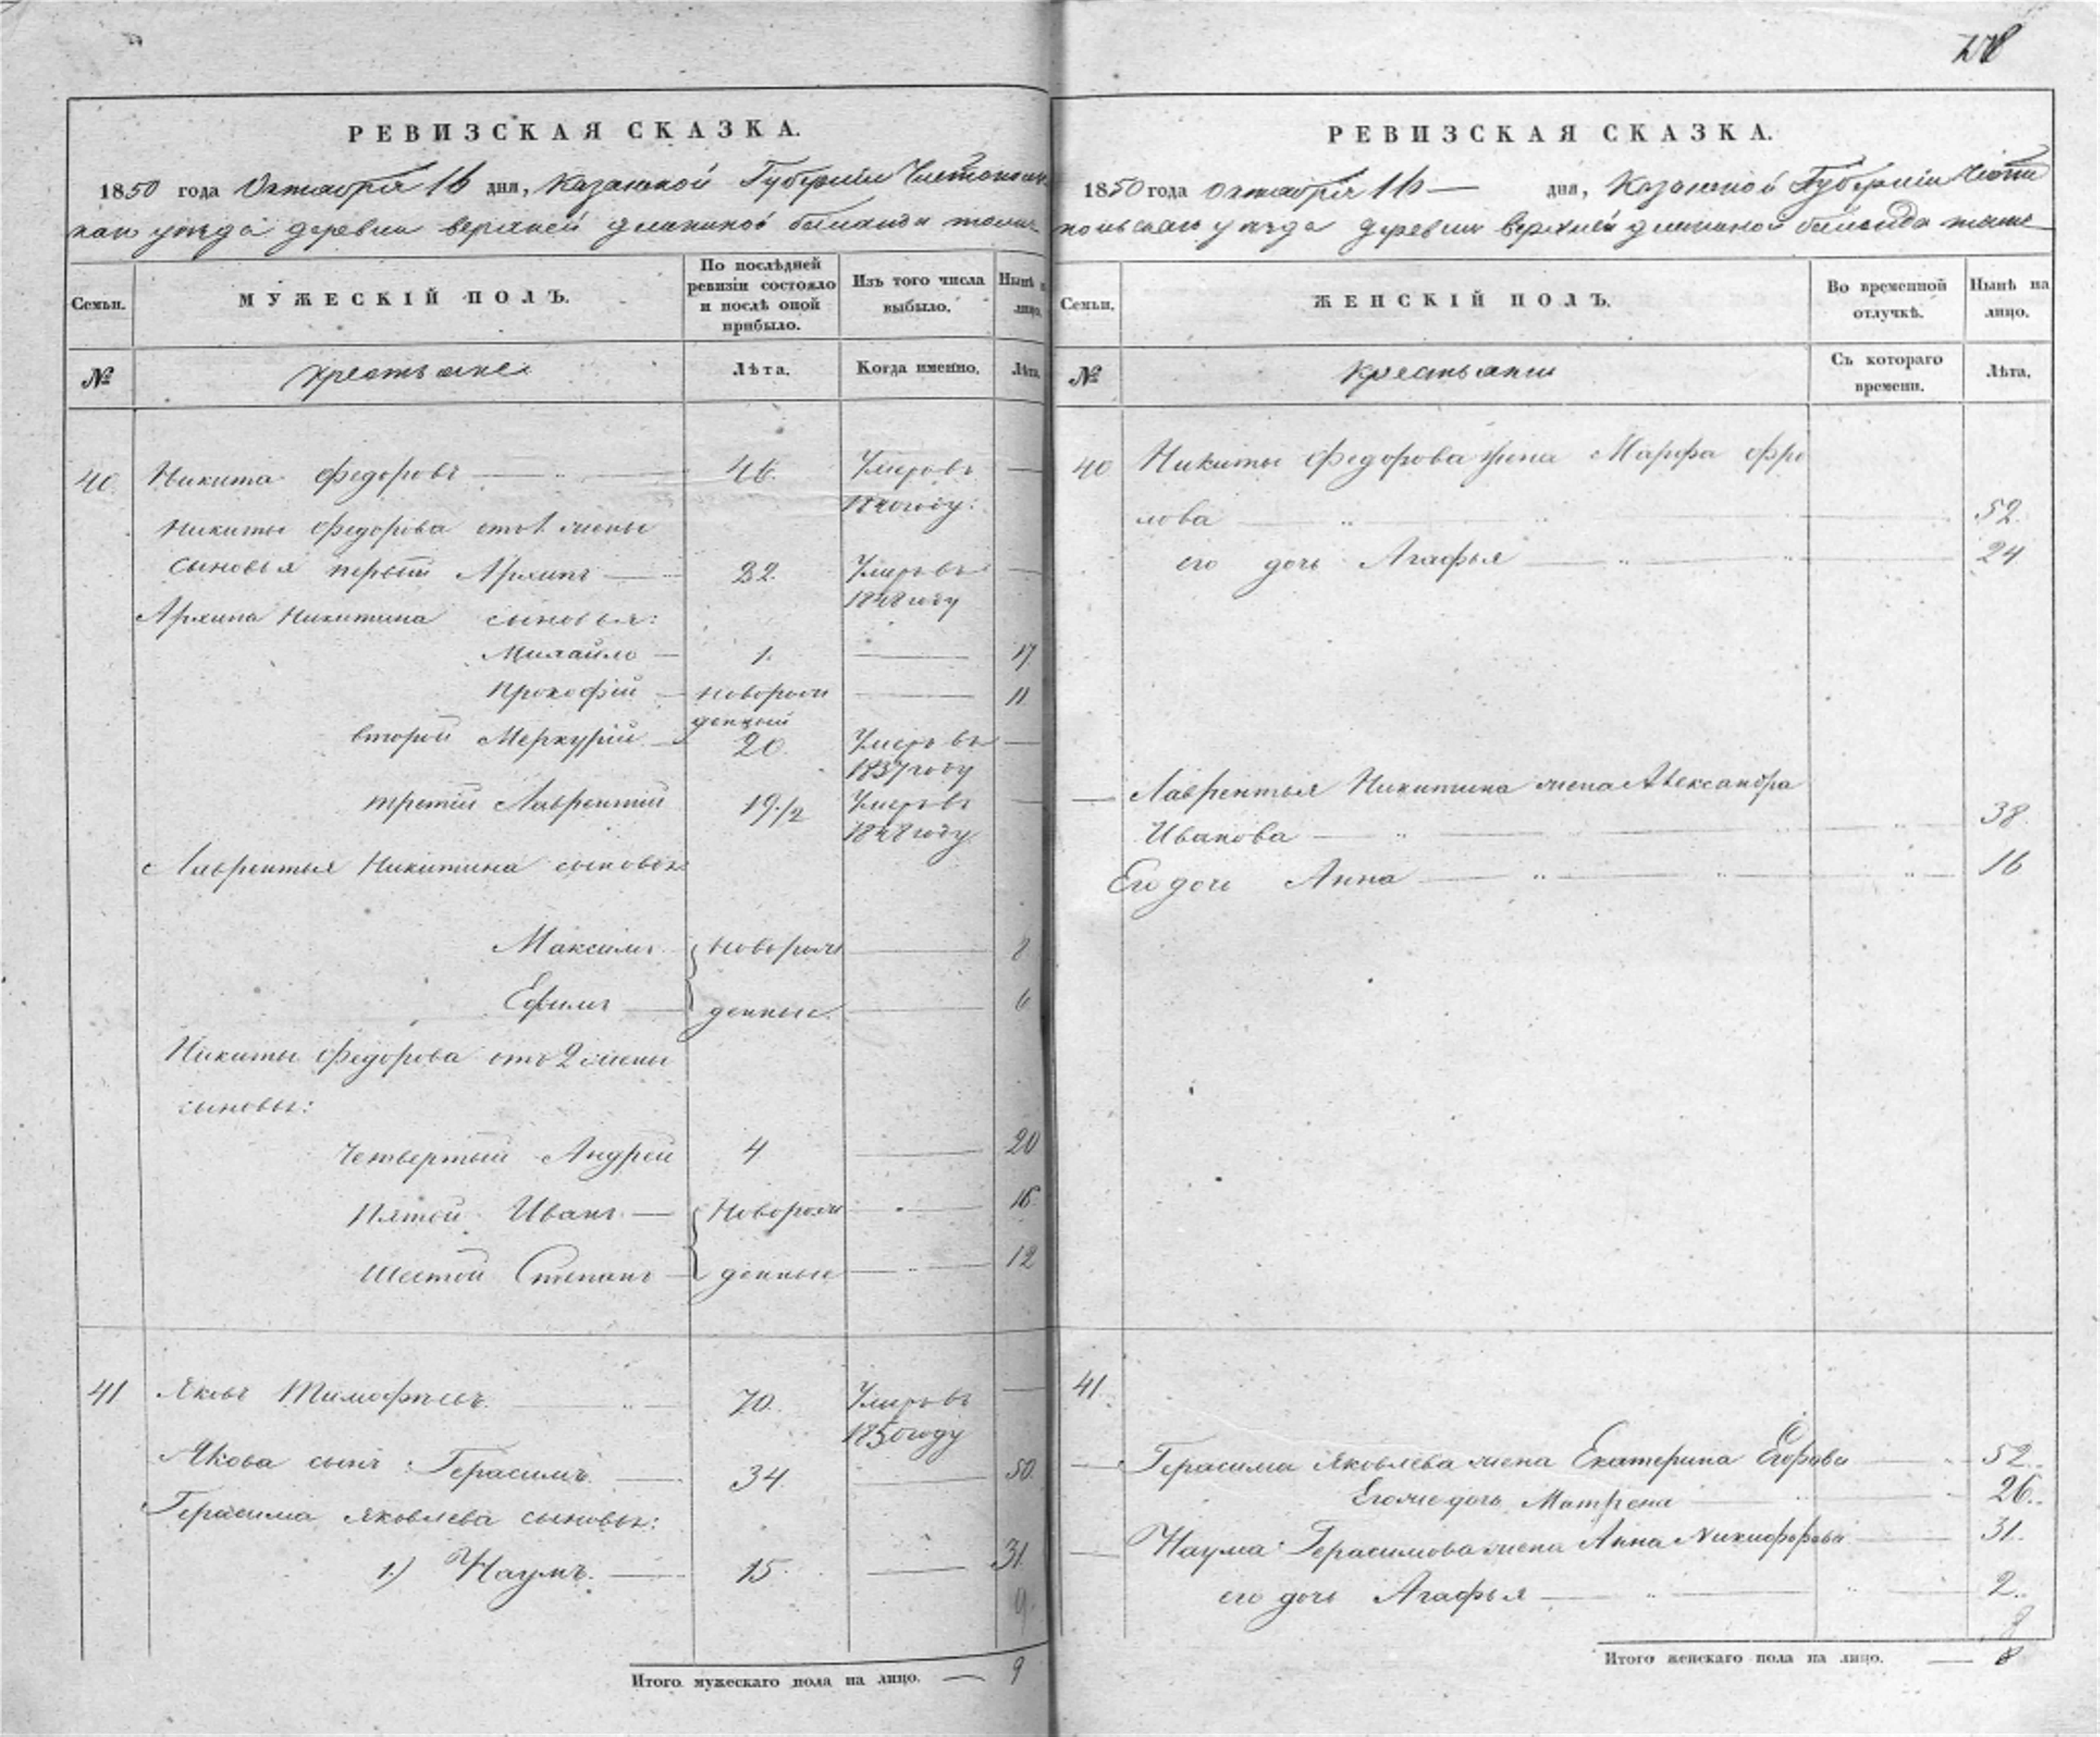 РЕВИЗСКАЯ СКАЗКА.
1850 года Октября 16 дня, Казанской Губернии Чистополь
скаго уезда деревни верхней
Семьи.
МУЖЕСКІЙ ПОЛЪ.
По послѣдней ревизіи состояло и послѣ оной прибыло.
Изъ того числа выбыло.
Нынѣ на лицо.
№
крестьяне
Лѣта.
Когда именно.
Лѣта.
40. Никита Федоровъ 46. Умеръ въ
1840 году.
Никиты Федорова отъ 1 жены
сыновья первый Архипъ 22. Умеръ въ
1848 году
Архипа Никитина сыновья:
Михайло 1. 17
Прокофій новорож 11
денный
второй Меркурій 20. Умеръ въ
1837 году
третій Лаврентій 19 1/2 Умеръ въ
1848 году
Лаврентья Никитина сыновья
Максимъ новорож 8
Ефимъ денные 6
Никиты Федорова отъ 2 жены
сыновья:
Четвертый Андрей 4 20
Пятой Иванъ Новорож 16
Шестой Степанъ денные 12
41 Яковъ Тимофеевъ 70. Умеръ въ
1850 году
Якова сынъ: Герасимъ. 34. 50.
Герасима Яковлева сыновья:
1.) Наумъ. 15. 31.
9.
Итого мужескаго пола на лицо. 9
РЕВИЗСКАЯ СКАЗКА.
1850 года октября 16 дня, Казанской Губерніи Чисто
польскаго уезда деревни верхней
Семьи.
ЖЕНСКІЙ ПОЛЪ.
Во временной отлучкѣ.
Нынѣ на лицо.
№
Крестьянки
Съ котораго времени.
Лѣта.
40 Никиты Федорова жена Марфа Фро
лова 52.
его дочь Агафья 24
Лаврентья Никитина жена Александра
Иванова 38.
Его дочь Анна 16
41.
Герасима Яковлева жена Екатерина Егорова 52.
Его же дочь Матрена 26.
Наума Герасимова жена Анна Никифорова 31.
его дочь Агафья 2.
8
Итого женскаго пола на лицо. 8